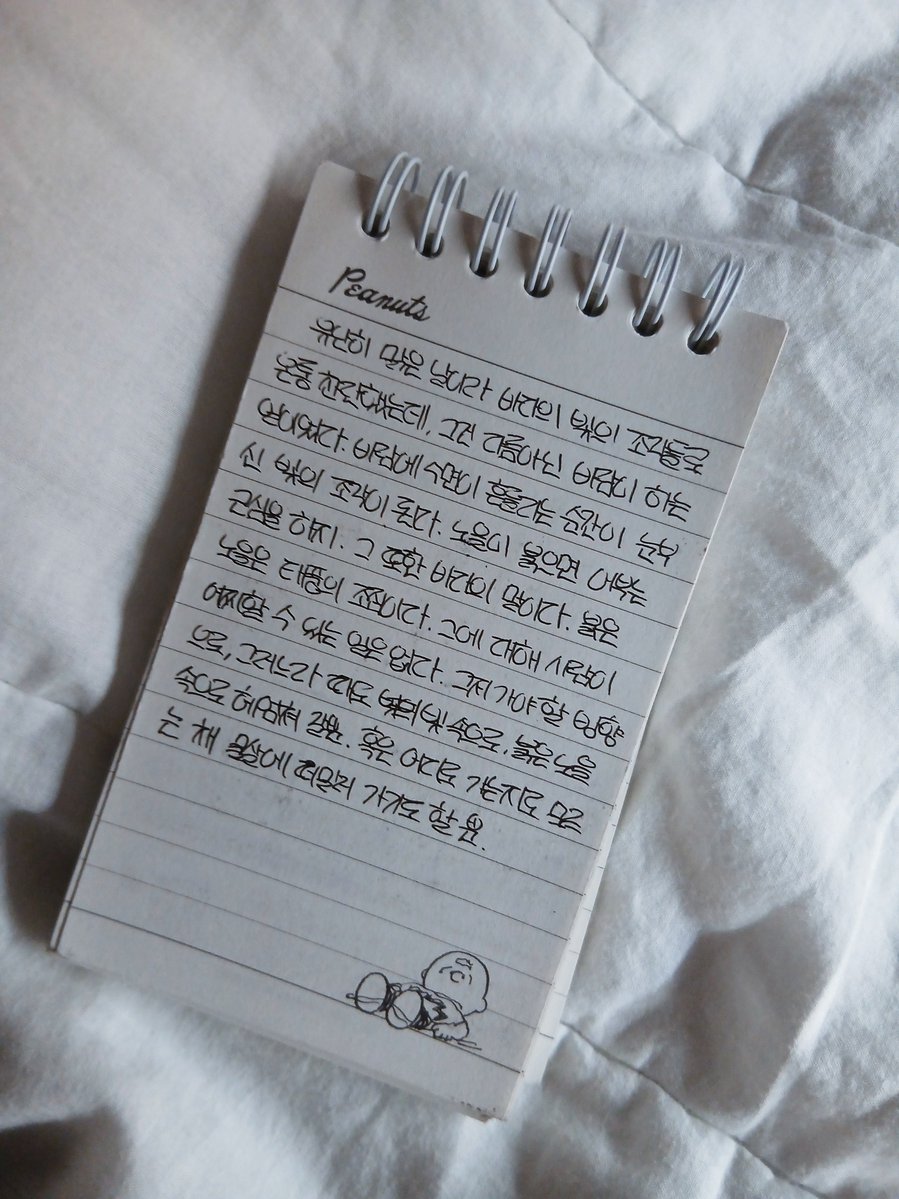 Peanuts
유난히 맑은 날이라 바다의 빛의 조각들로
온통 찬란했는데, 그건 다름아닌 바람이 하는
일이었다. 바람에 수면이 흔들리는 순간이 눈부
신 빛의 조각이 된다. 노을이 붉으면 어부는
근심을 하지. 그 또한 바다의 말이다. 붉은
노을은 태풍의 조짐이다. 그에 대해 사람이
어찌할 수 있는 일은 없다. 그저 가야 할 방향
으로, 그러느라 때로 속으로, 붉은 노을
속으로 헤엄쳐 갈뿐. 혹은 어디로 가는지도 모르
는 채 물살에 떠밀려 가기도 할 뿐.